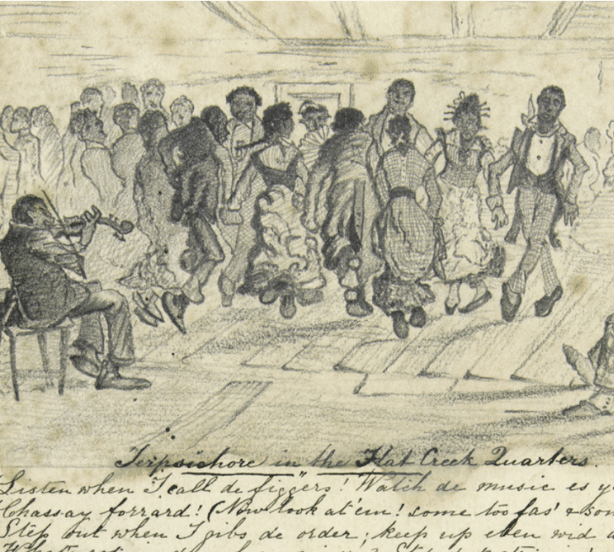 Terpsichore in the Flat Creek Quarters.
Listen when I call de figgers! Watch de music es y
Chassay forrard! (Now look at'em! some too fas' & som
Step out when I gibs de order; keep up eben wid